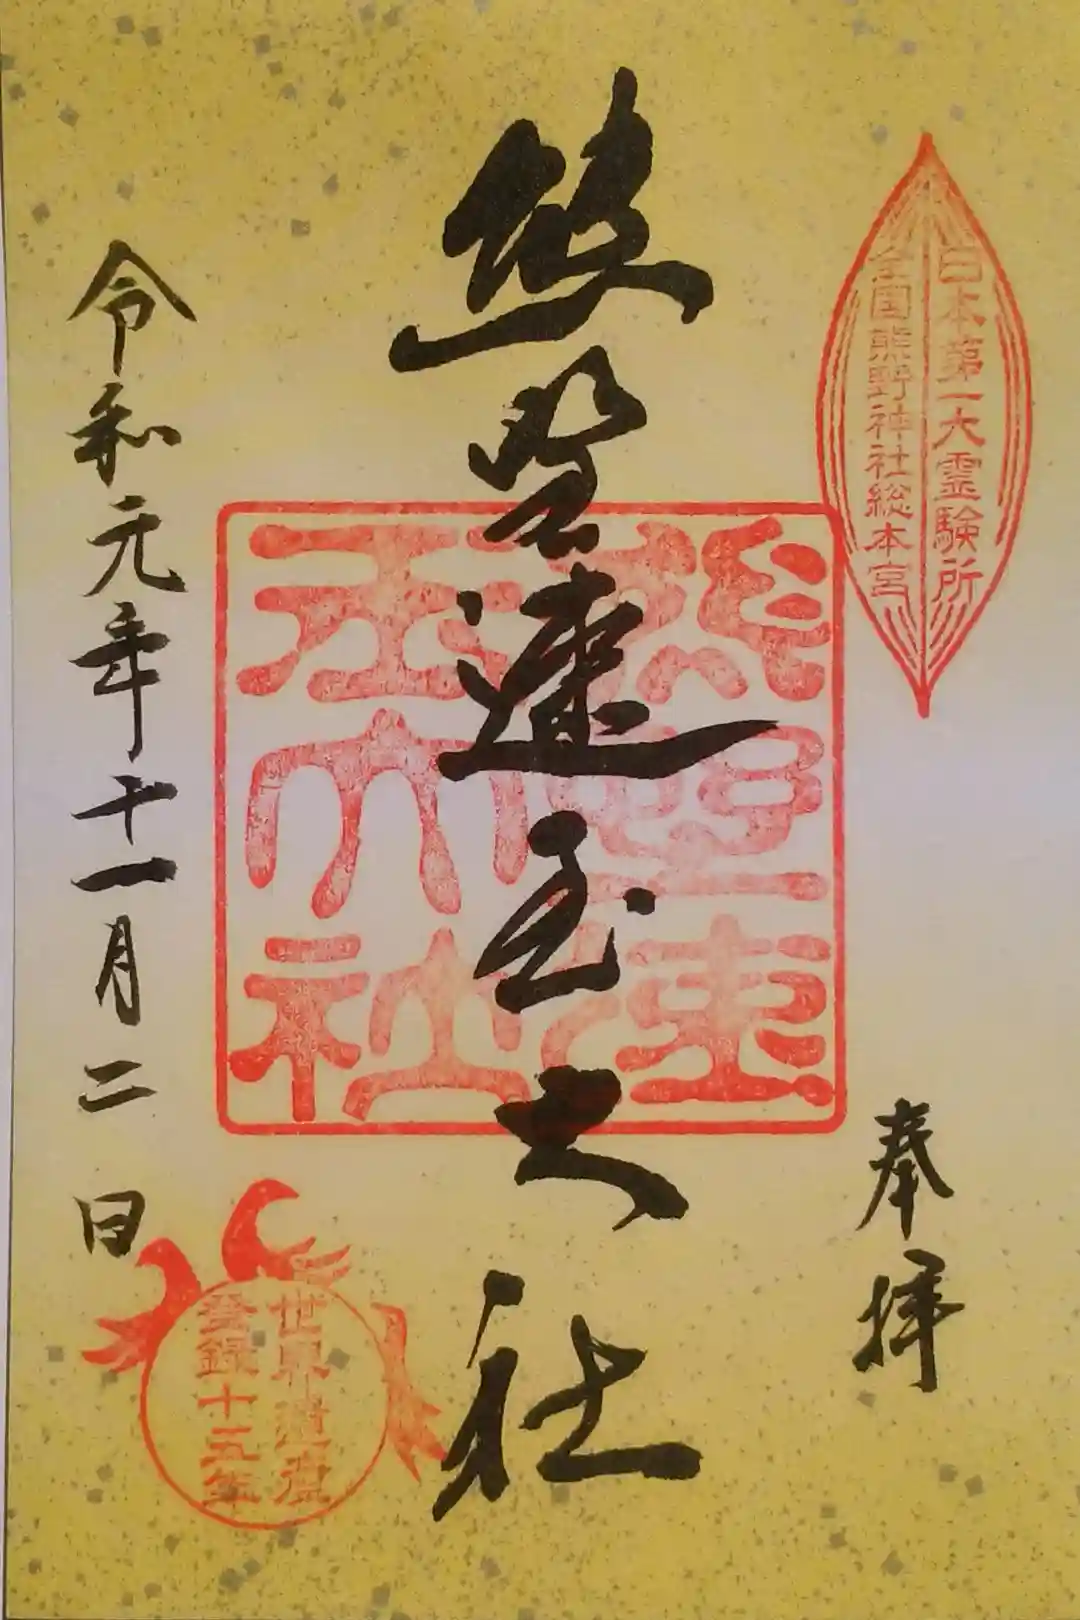 日本第一大霊験所
全国熊野神社総本宮
奉拝
熊野速玉大社
熊野速玉大社
令和元年十一月二日
世界遺産
登録十五年